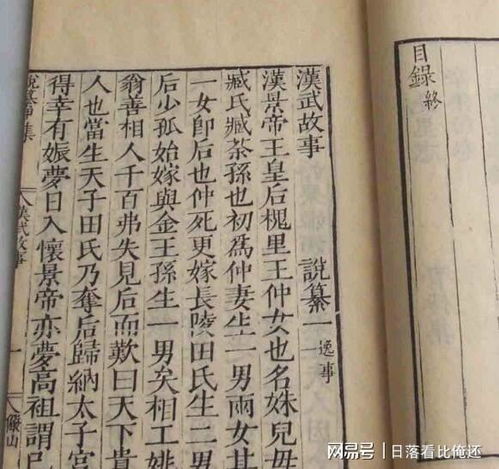 目錄終
漢武故事 說纂一 逸事
漢景帝王皇后槐里王仲女也名姝兒母
臧氏臧荼孫也初爲仲妻生一男兩女其
一女卽后也仲死更嫁長陵田氏生二男
后少孤始嫁與金王孫生一男矣相工姚
翁善相人千百弗失見后而歎曰天下貴
人也當生天子田氏乃奪后歸納太子宮
得幸有娠夢日入懷景帝亦夢高祖謂己
說纂 集
漢武故事
一
儼山
网易号 | 日落看比俺还